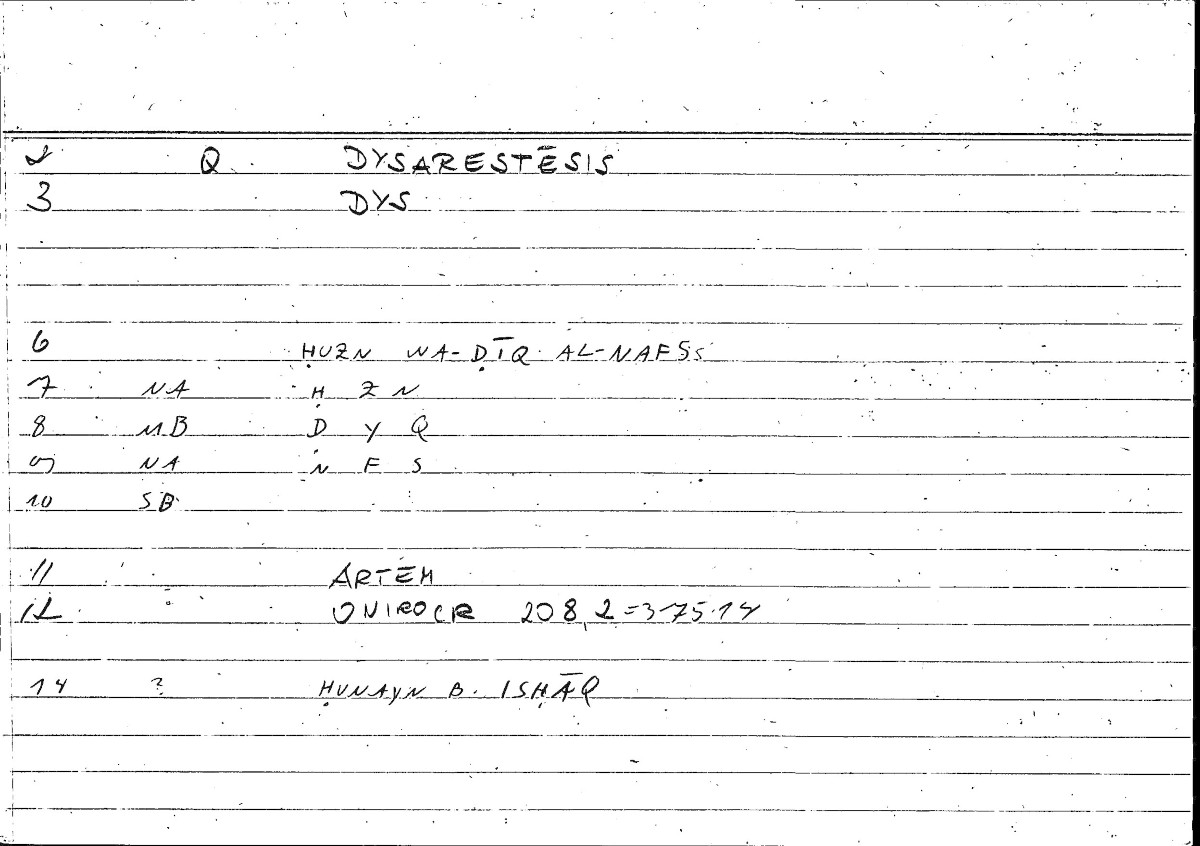 2 Q DYSARESTĒSIS
3 DYS
6 ḤUZN WA-ḌĪQ AL-NAFS
7 NA Ḥ Z N
8 MB Ḍ Y Q
9 NA N F S
10 SB
11 ARTEM
12 ONIROCR 208,2=375.14
14 ? ḤUNAYN B. ISḤĀQ